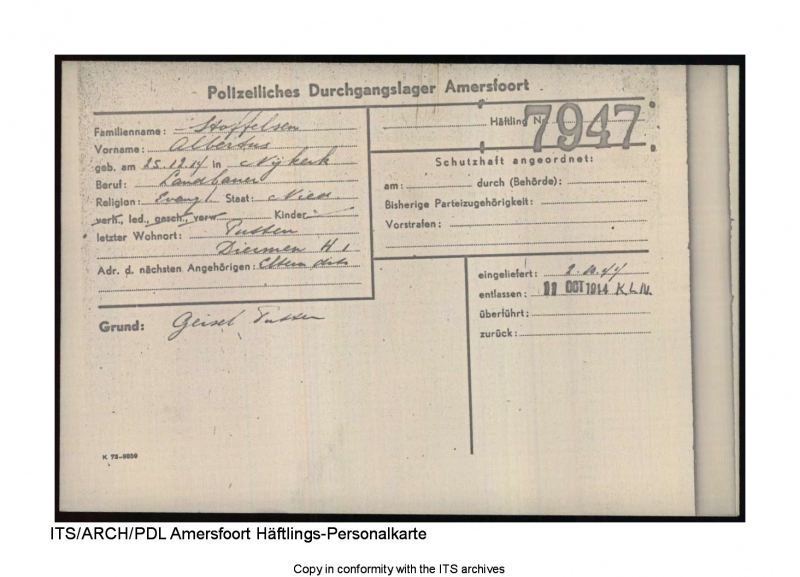 Polizeiliches Durchgangslager Amersfoort
Familienname: Stoffelsen
Vorname: Albertus
geb. am 25.12.14 in Nijkerk
Beruf: Landbauer
Religion: Evangl. Staat: Nied.
verh., led., gesch., verw. Kinder: —
letzter Wohnort: Putten
Diermen H 1
Adr. d. nächsten Angehörigen: Eltern dito
Häftling Nr. 7947
Schutzhaft angeordnet:
am: durch (Behörde):
Bisherige Parteizugehörigkeit:
Vorstrafen:
eingeliefert: 2.10.44
entlassen: 11 OCT 1944 K.L.N.
überführt:
zurück:
Grund: Geisel Putten
K 72-8839
ITS/ARCH/PDL Amersfoort Häftlings-Personalkarte
Copy in conformity with the ITS archives